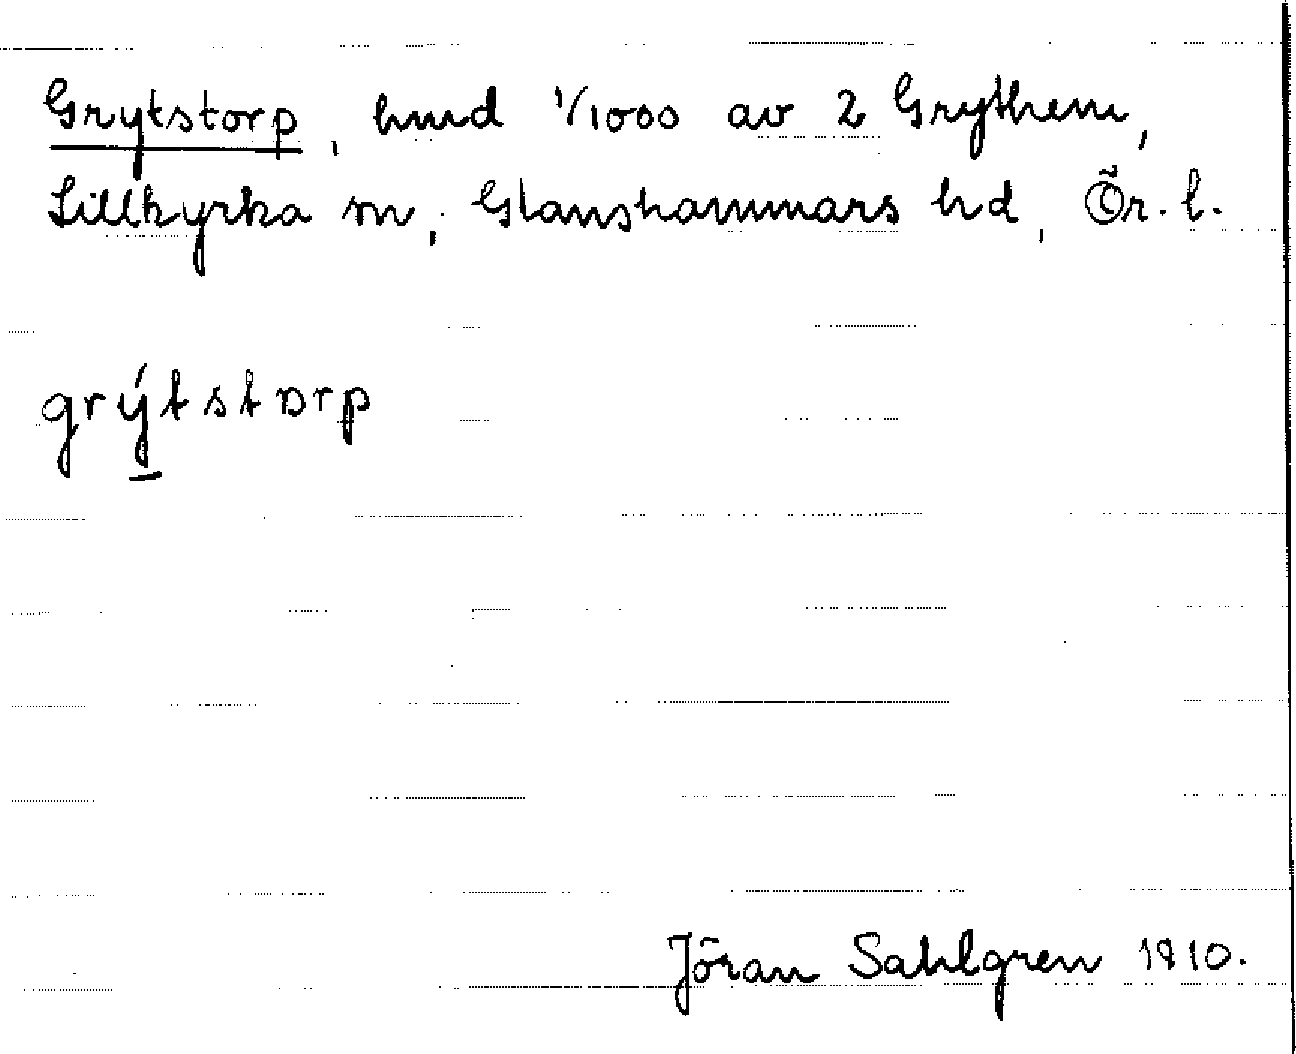 Grytstorp, hmd 1/1000 av 2 Grythem,
Lillkyrka sn, Glanshammars hd, Ör. l.
grýtstorp
Jöran Sahlgren 1910.